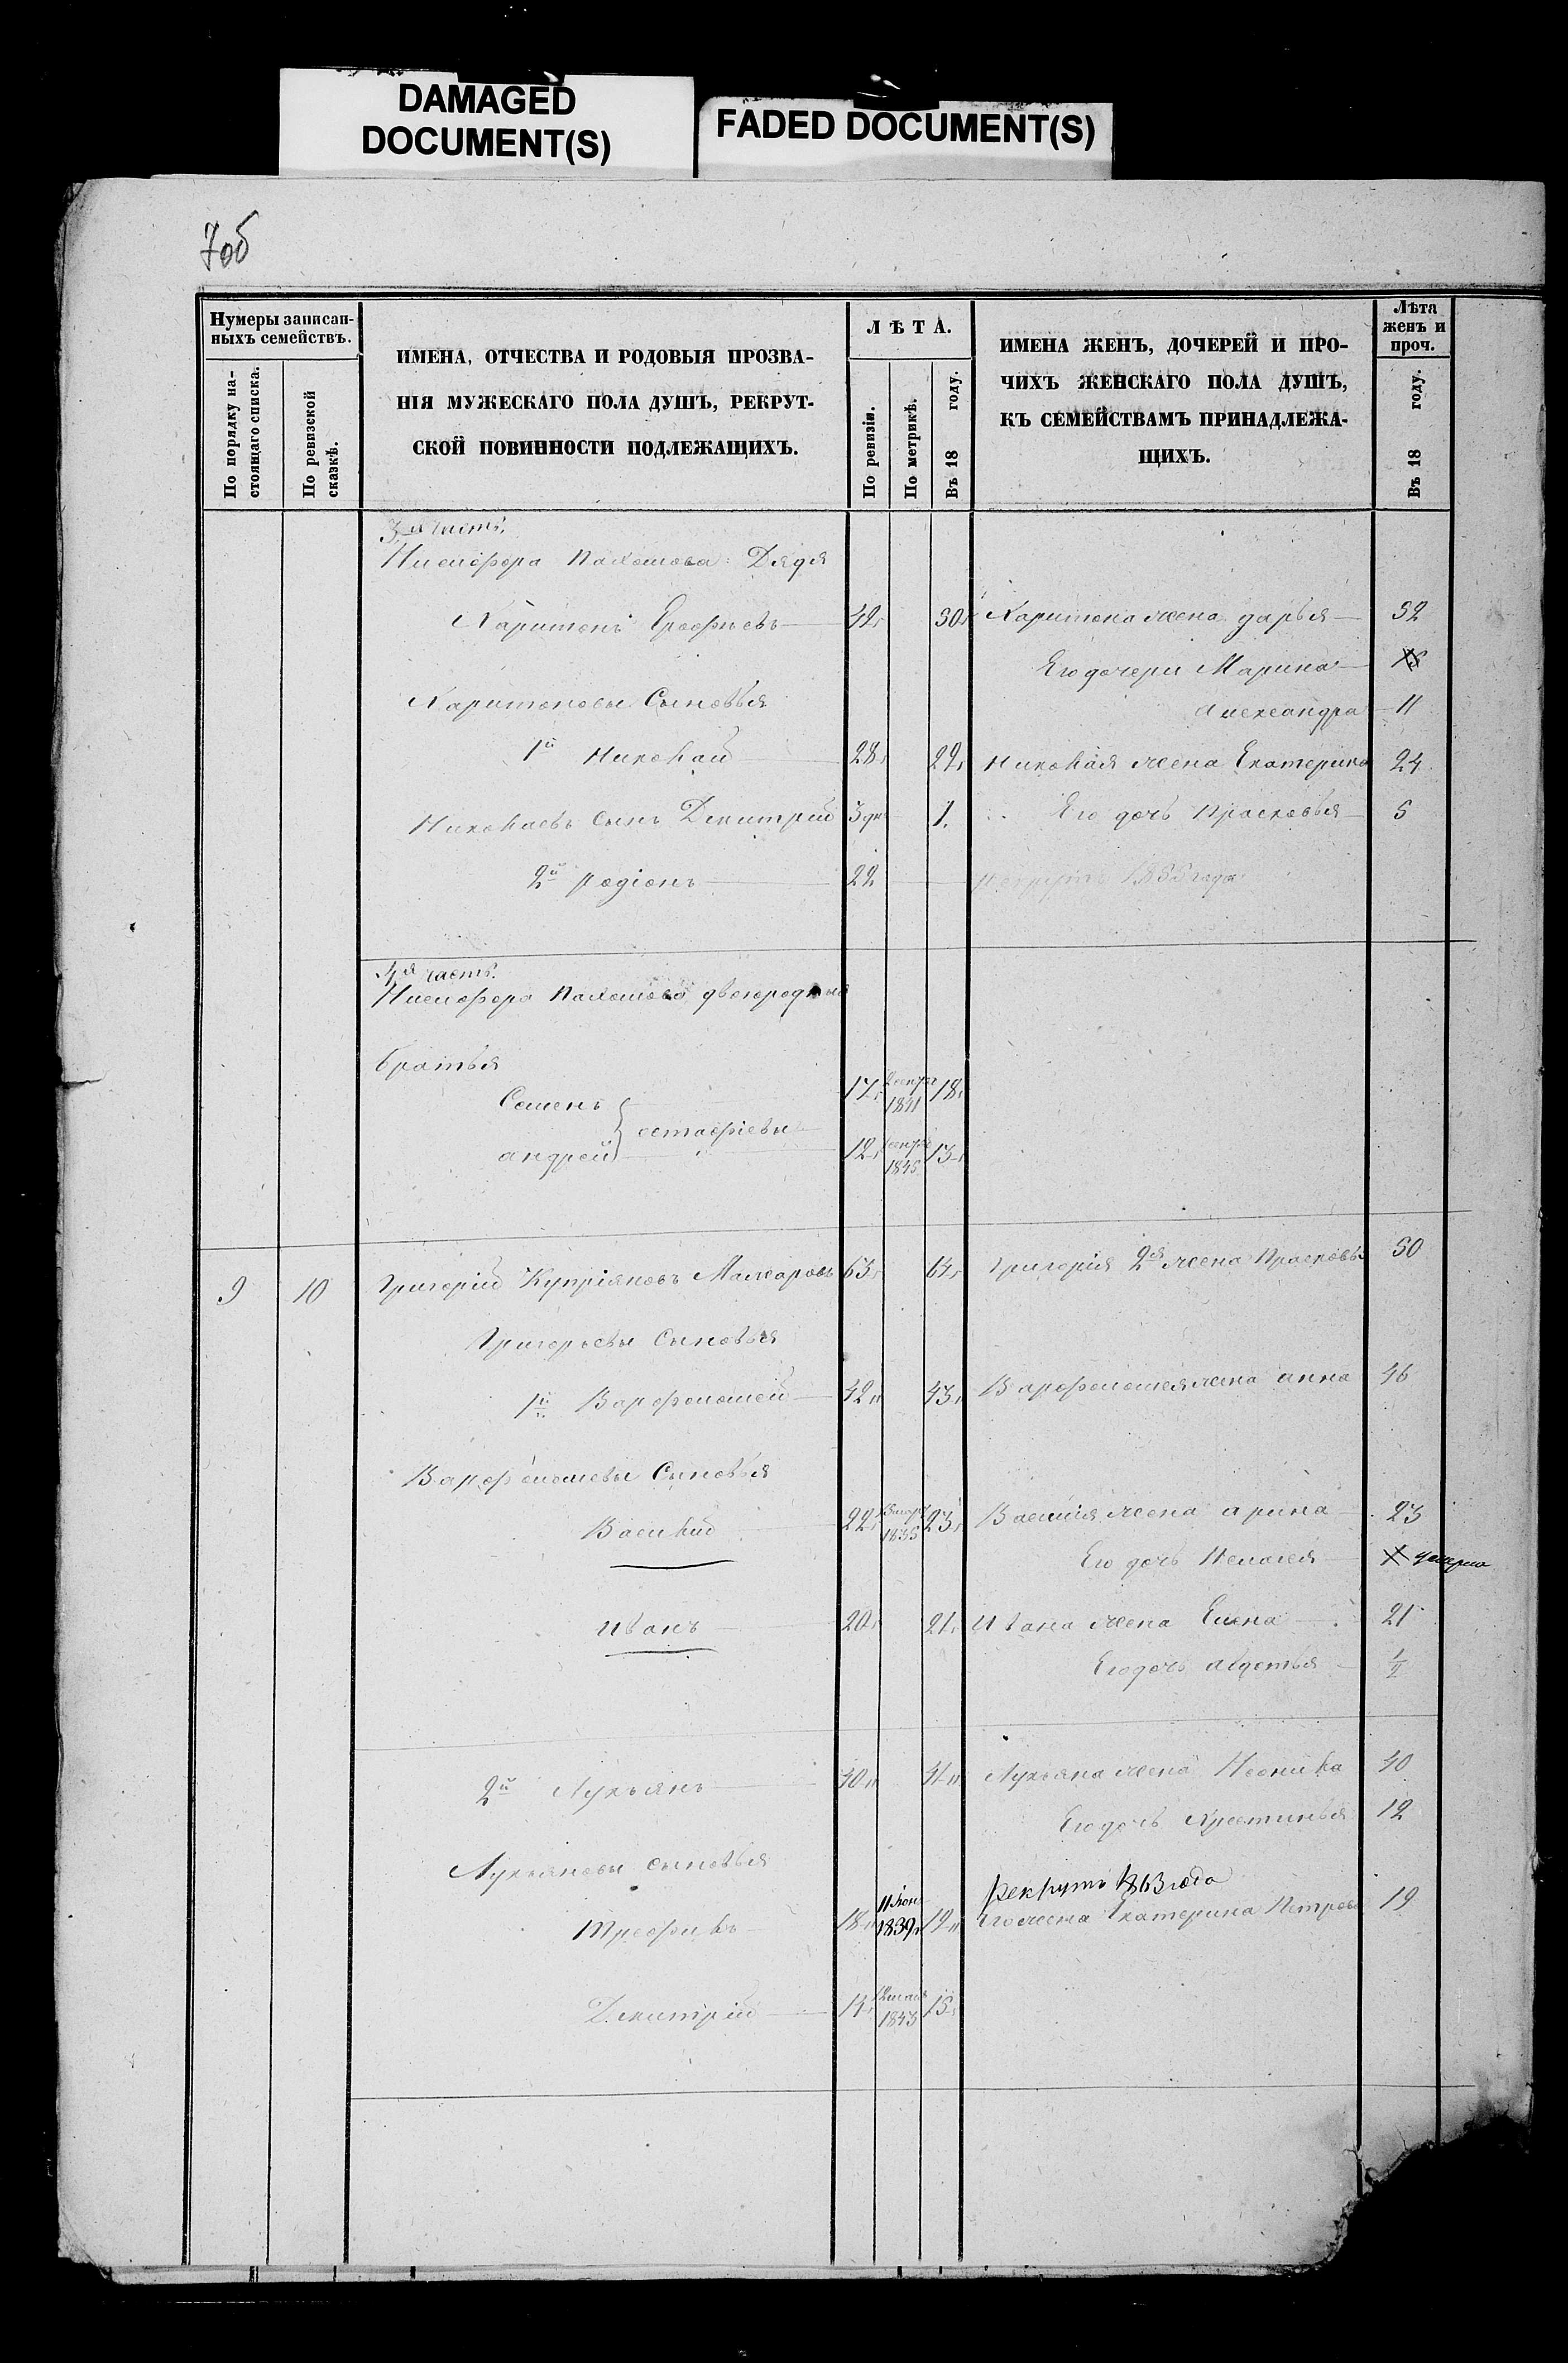 DAMAGED
DOCUMENT(S)
FADED DOCUMENT(S)
7об
Нумеры записан-
ныхъ семействъ.
По порядку на-
стоящаго списка.
По ревизской
сказкѣ.
ИМЕНА, ОТЧЕСТВА И РОДОВЫЯ ПРОЗВА-
НІЯ МУЖЕСКАГО ПОЛА ДУШЪ, РЕКРУТ-
СКОЙ ПОВИННОСТИ ПОДЛЕЖАЩИХЪ.
ЛѢТА.
По ревизіи.
По метрикѣ.
Въ 18 году.
ИМЕНА ЖЕНЪ, ДОЧЕРЕЙ И ПРО-
ЧИХЪ ЖЕНСКАГО ПОЛА ДУШЪ,
КЪ СЕМЕЙСТВАМЪ ПРИНАДЛЕЖА-
ЩИХЪ.
Лѣта
женъ и
проч.
Въ 18 году.
3я часть.
Никифора Пахомова Дядя
Харитонъ Ерофѣевъ 50 Харитона жена дарья 52
Его дочери Марина
Харитоновы Сыновья
Александра 11
1й Николай 28 29 Николая жена Екатерина 24
Николаевъ сынъ Дмитрий 3 дн 1. Его дочь Прасковья 5
2й родіонъ 22 1855 года
4я часть.
Никифора Пахомова двоюродные
братья
Семенъ 17 1841 18
остафіевы
андрей 12 1845 13
9 10 Григорій Купріяновъ 63 64 Григорія 2я жена Прасковья 50
Григорьевы Сыновья
1й Варфоломей 42 43 Варфоломея жена анна 46
Варфоломевы Сыновья
Василий 22 1835 23 Василия жена арина 23
Его дочь Пелагея умерла
Иванъ 20 21 Ивана жена Елена 21
Его дочь авдотья 1/2
2й Лукьянъ 40 41 Лукьяна жена Неонила 40
Его дочь Хрестинья 12
Лукьяновы сыновья
рекрутъ 1863 года
Трофилъ 18 1839 19 Его жена Екатерина Петрова 19
Дмитрій 14 12 мая 1843 15